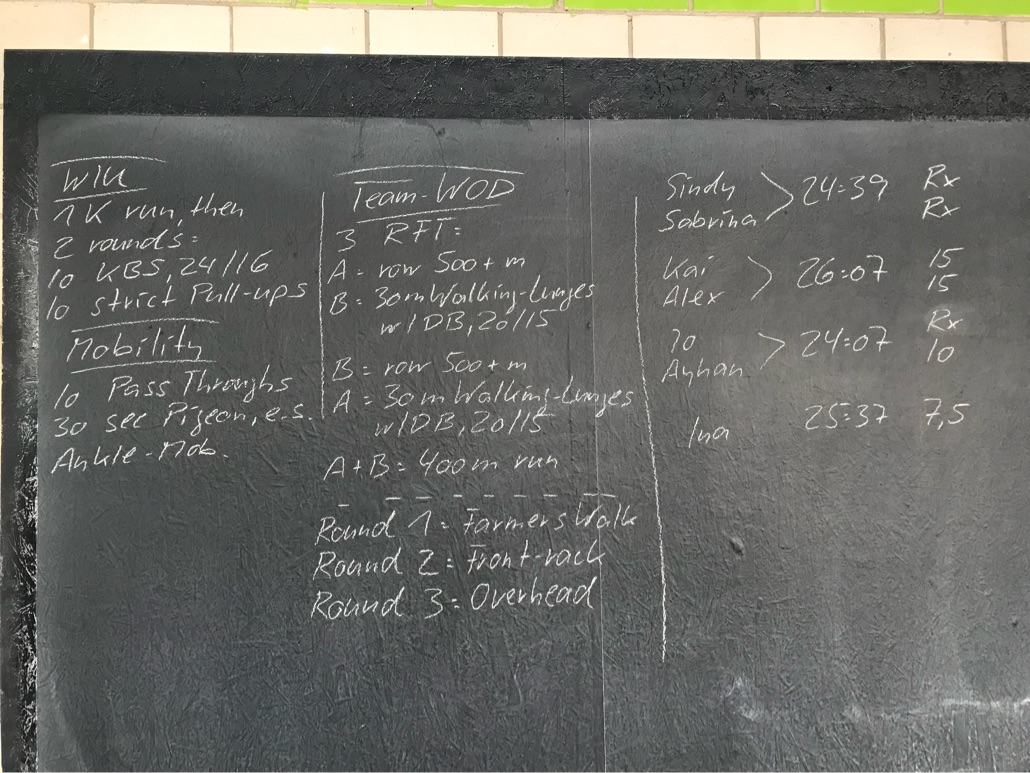 WIU
1K run, then
2 rounds:
10 KBS, 24/16
10 strict Pull-ups
Mobility
10 Pass Throughs
30 sec Pigeon, e.s.
Ankle-Mob.
Team-WOD
3 RFT:
A = row 500+ m
B = 30m Walking-Lunges
w/DB, 20/15
B = row 500+ m
A = 30m Walking-Lunges
w/DB, 20/15
A+B = 400m run
Round 1 = Farmers Walk
Round 2 = Front-rack
Round 3 = Overhead
Sindy 24:39 Rx
Sabrina Rx
Kai 26:07 15
Alex 15
Jo 24:07 Rx
Ayhan 10
Ina 25:37 7,5